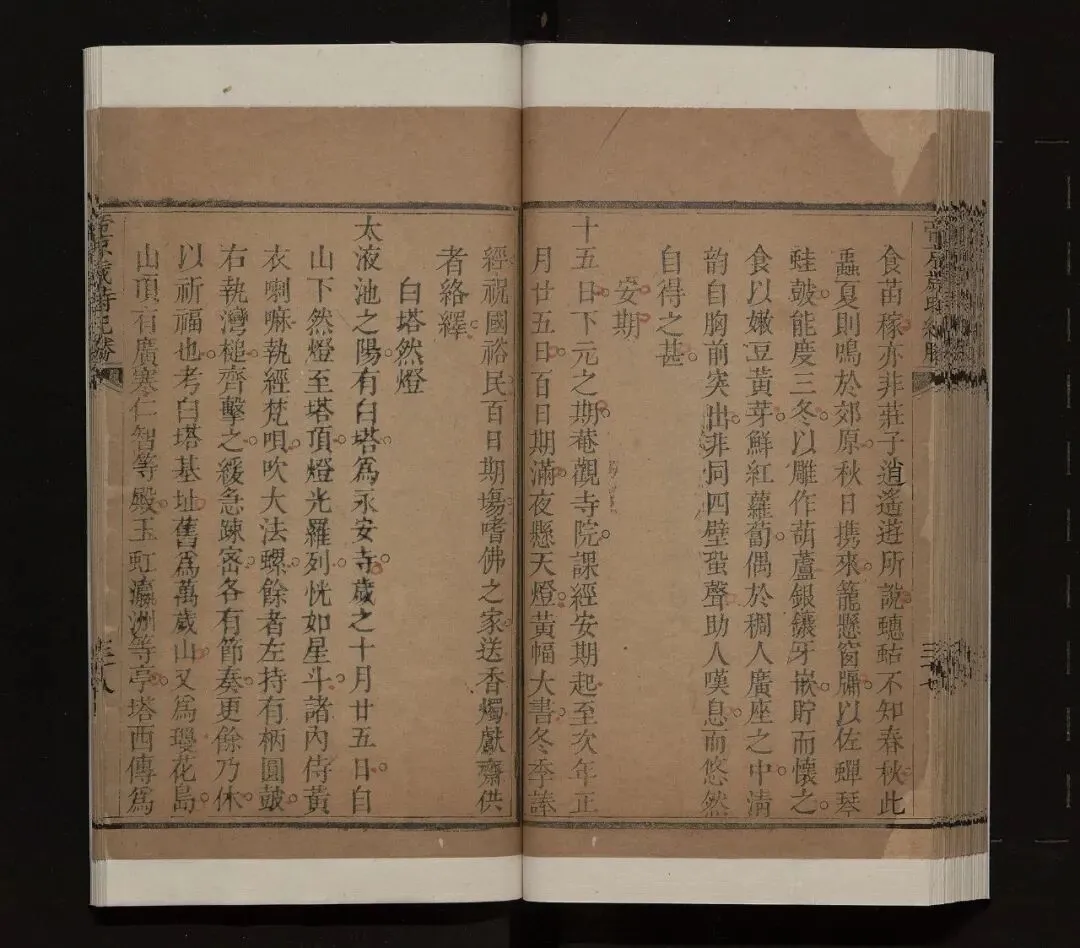 食苗稼亦非莊子逍遙遊所説蟪蛄不知春秋此
蟲夏則鳴於郊原秋日携來籠懸窗牖以佐蟬琴
蛙鼓能度三冬以雕作葫蘆銀鑲牙嵌貯而懷之
食以嫩豆黃芽鮮紅蘿蔔偶於稠人廣座之中清
韵自胸前突出非同四壁蛩聲助人嘆息而悠然
自得之甚
安期
十五日下元之期菴觀寺院課經安期起至次年正
月廿五日百日期滿夜懸天燈黃幅大書冬季諷
經祝國裕民百日期塲嗜佛之家送香燭獻齋供
者絡繹
白塔然燈
太液池之陽有白塔爲永安寺歲之十月廿五日自
山下然燈至塔頂燈光羅列恍如星斗諸內侍黃
衣喇嘛執經梵唄吹大法螺餘者左持有柄圓鼓
右執灣槌齊擊之緩急踈宻各有節奏更餘乃休
以祈福也考白塔基址舊爲萬歲山又爲瓊花島
山頂有廣寒仁智等殿玉虹瀛洲等亭塔西傳爲
帝京歲時紀勝